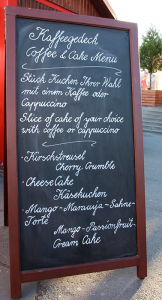 Kaffeegedeck
Coffee & Cake Menu
Stück Kuchen Ihrer Wahl
mit einem Kaffee oder
Cappuccino
Slice of cake of your choice
with coffee or cappuccino
- Kirschstreusel
Cherry Crumble
- Cheese Cake
Käsekuchen
- Mango-Maracuja-Sahne-
Torte
Mango-Passionfruit-
Cream Cake